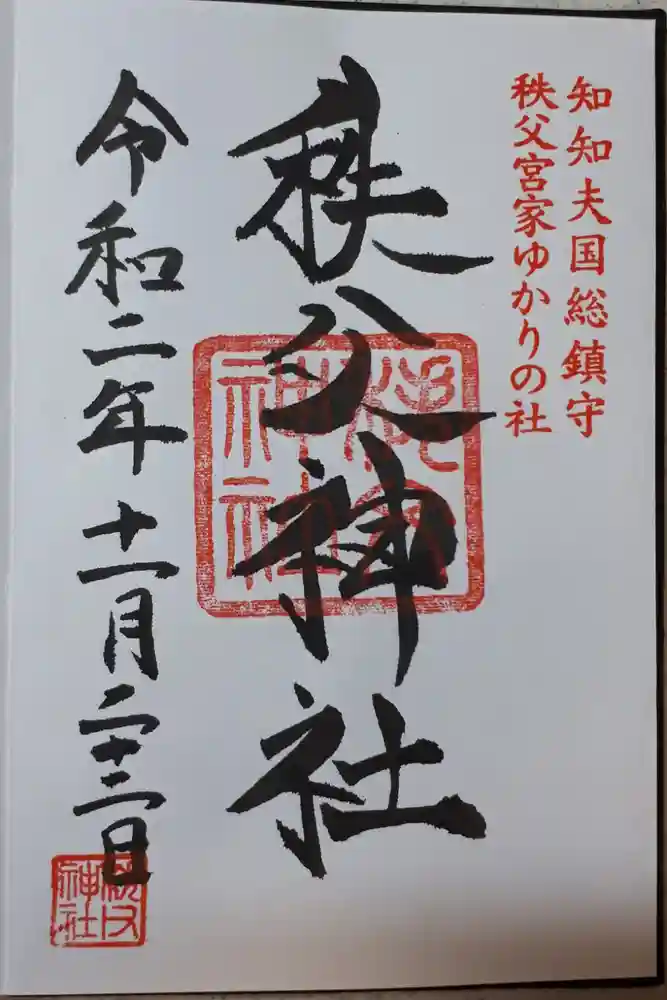 知知夫国総鎮守
秩父宮家ゆかりの社
秩父神社
秩父神社
令和二年十一月二十二日
秩父神社